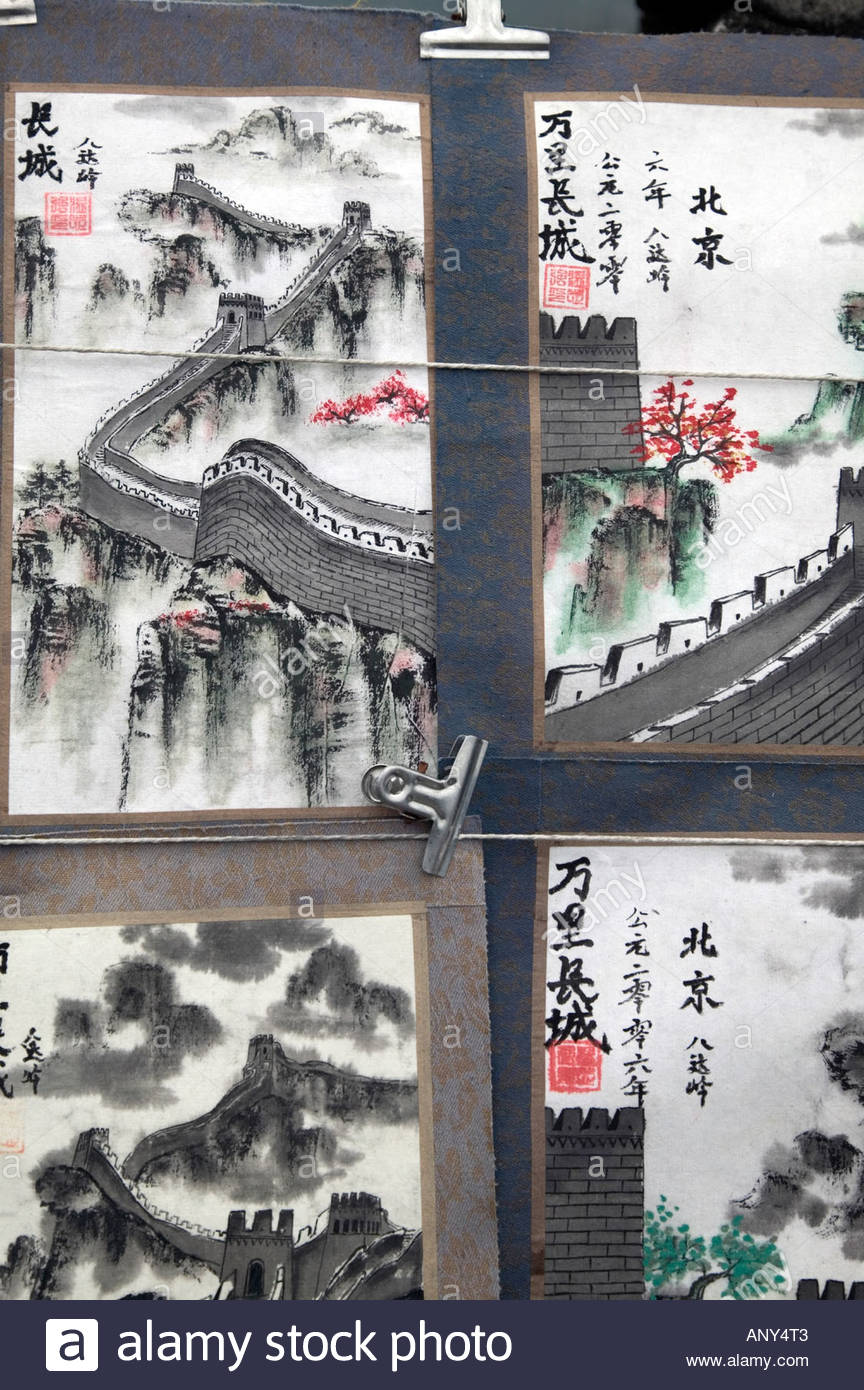 长城
八达岭
万里长城
公元二零零
六年 八达岭
北京
八达岭
万里长城
公元二零零六年
北京
八达岭
alamy
alamy stock photo
ANY4T3
www.alamy.com